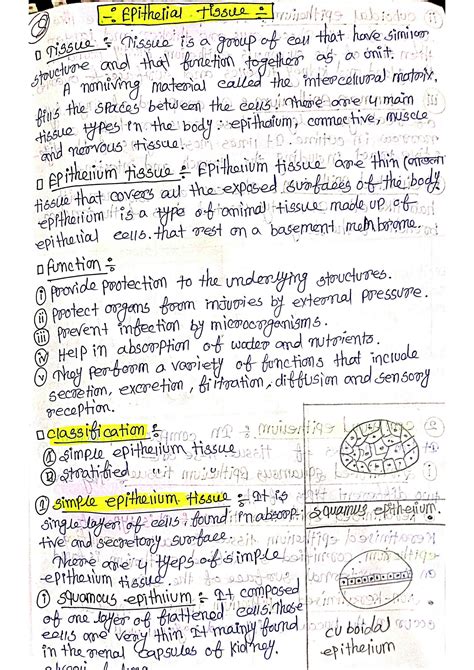 ÷ Epithelial Tissue ÷
Tissue ÷ Tissue is a group of cell that have similar
structure and that function together as a unit.
A nonliving material called the intercellural matrix,
fills the spaces between the cells. There are 4 main
tissue types in the body. epithelium, connective, muscle
and nervous tissue.
Epithelium tissue ÷ Epithelium tissue are thin
tissue that covers all the exposed surfaces of the body
epithelium is a type of animal tissue made up of
epithelial cells. that rest on a basement membrane.
function ÷
i provide protection to the underlying structures.
ii protect organs form injuries by external pressure.
iii prevent infection by microorganisms.
iv Help in absorption of water and nutrients.
v They perform a variety of functions that include
secretion, excretion, filtration, diffusion and sensory
reception.
classification ÷
1 simple epithelium tissue
2 stratified " "
1 simple epithelium tissue ÷ It is
single layer of cells found in absorp-
tive and secretory surface
There are 4 types of simple
epithelium tissue
i squamous epithelium ÷ It composed
of one layer of flattened cells. These
cells are very thin It mainly found
in the renal capsules of kidney.
squamus epithelium.
cuboidal
epithelium